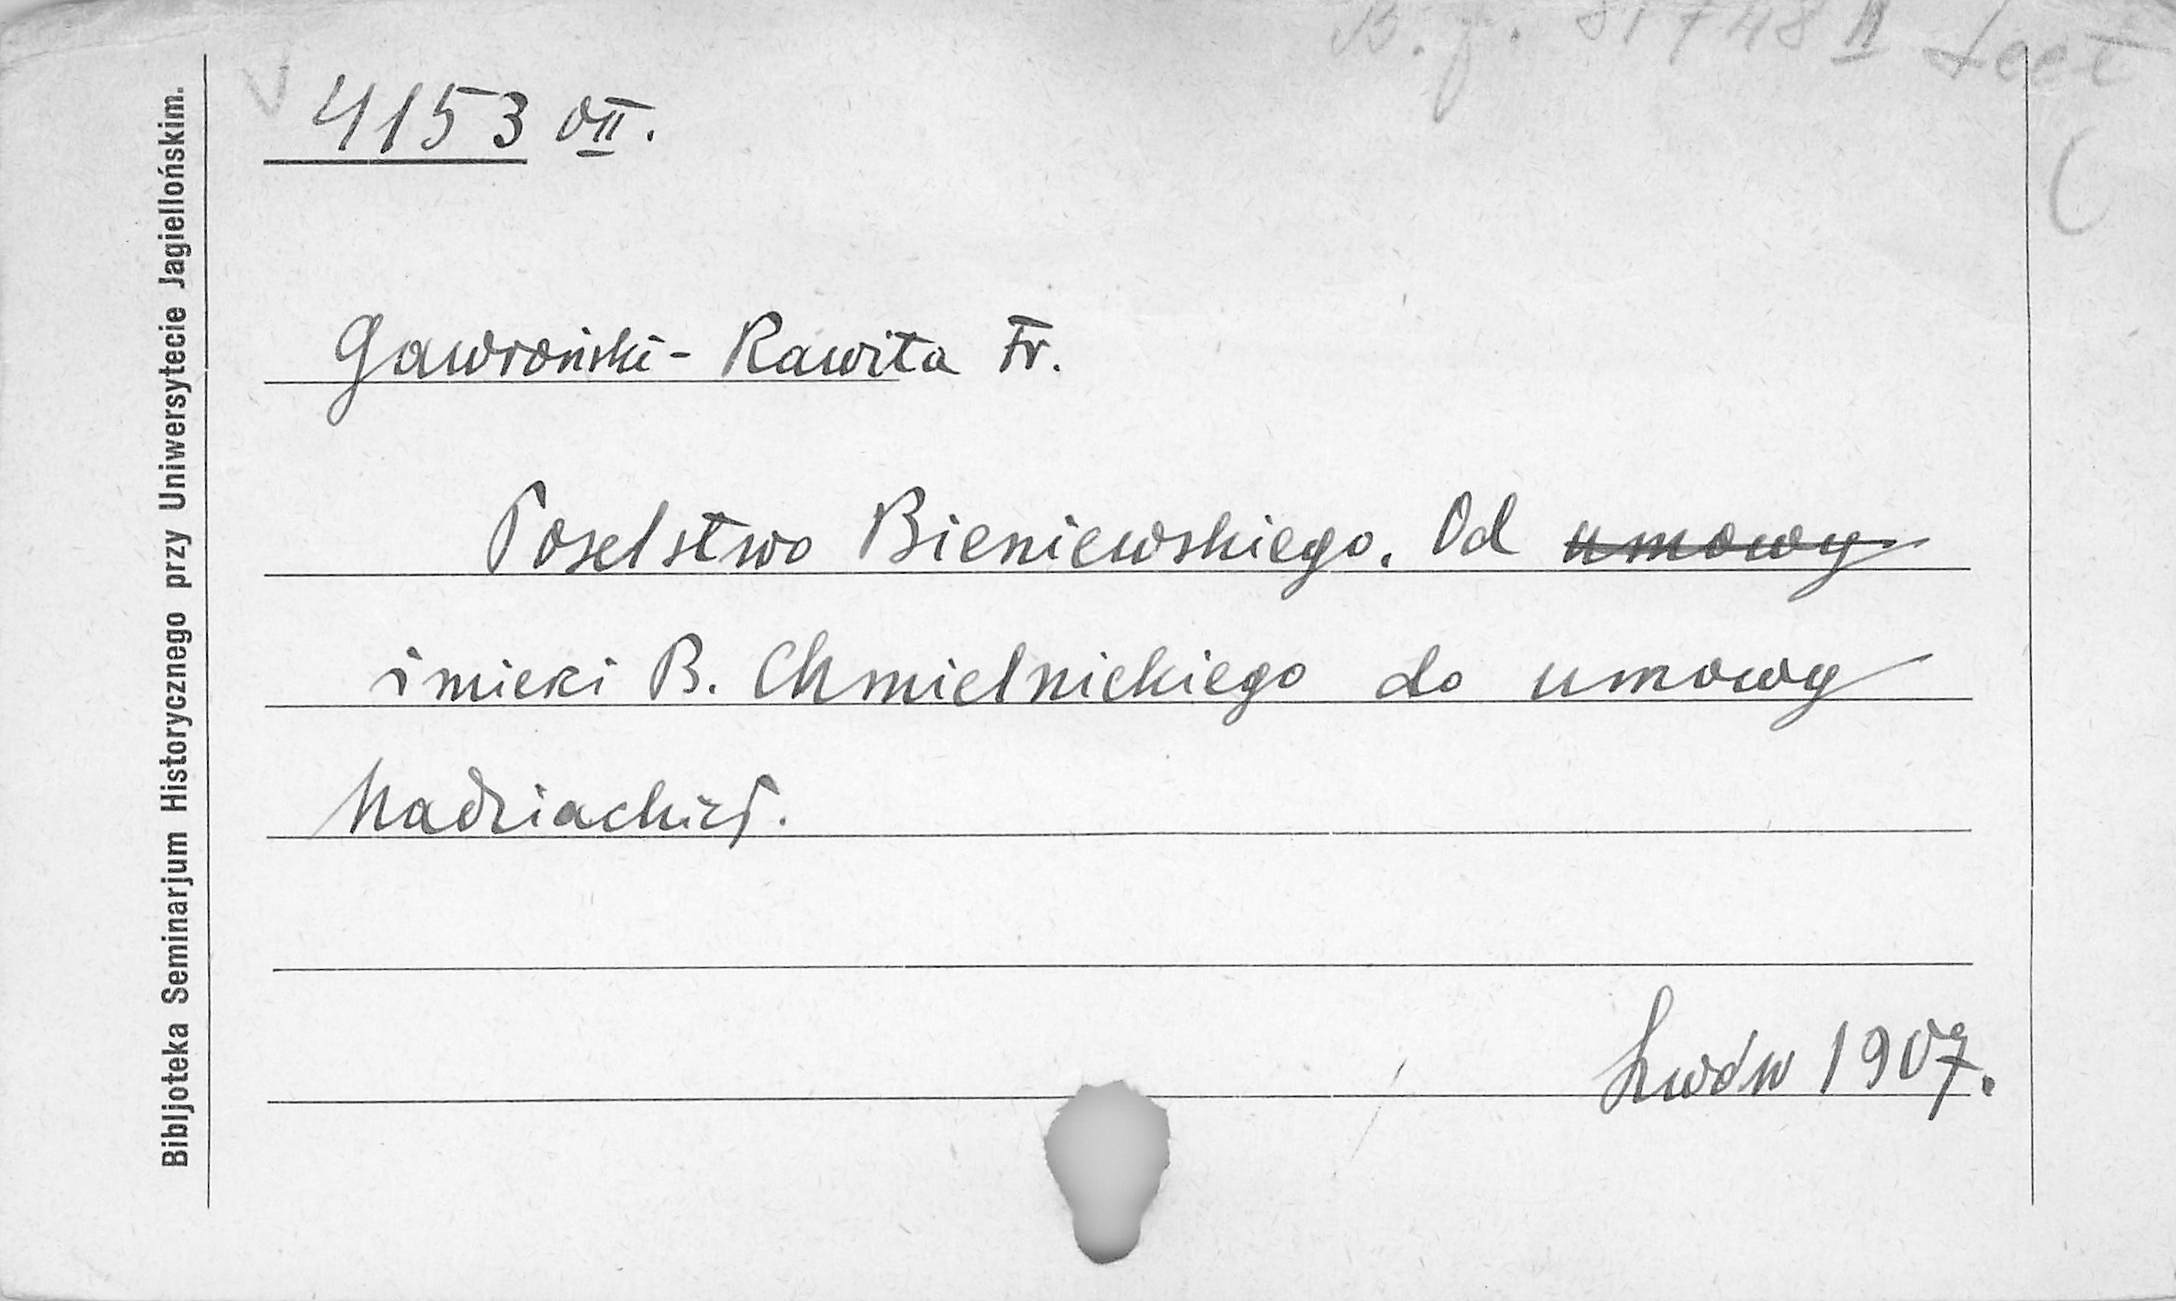 B. j. 81748 II Leet
V 4153 O II.
Gawroński - Rawita Fr.
Poselstwo Bieniewskiego. Od ~~umowy~~
śmierci B. Chmielnickiego do umowy
Hadziackiej.
Lwów 1907.
Bibljoteka Seminarjum Historycznego przy Uniwersytecie Jagiellońskim.